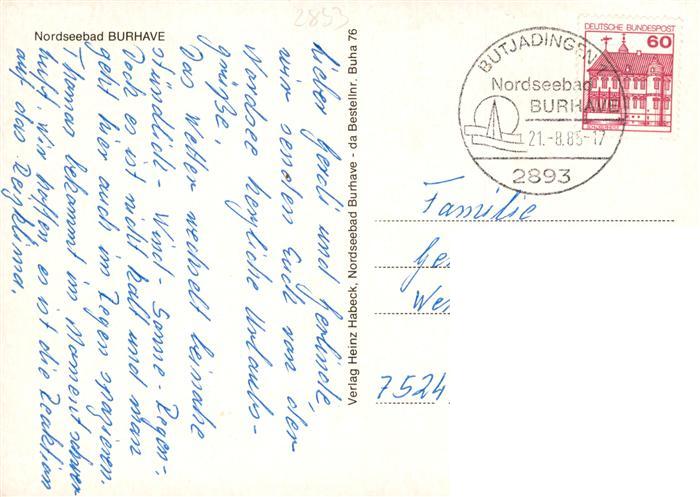 2893
Nordseebad BURHAVE
Lieber Gerdi und Gerlinde,
wir senden Euch von der
Nordsee herzliche Urlaubs-
grüße.
Das Wetter wechselt beinahe
stündlich - Wind - Sonne - Regen -
Doch es ist nicht kalt und man
geht hier auch im Regen spazieren.
Thomas bekommt im Moment schwer
Luft, wir hoffen es ist die Reaktion
auf das Reizklima.
Verlag Heinz Habeck, Nordseebad Burhave - da Bestellnr. Buha 76
BUTJADINGEN 1
Nordseebad
BURHAVE
21.-8.85-17
2893
DEUTSCHE BUNDESPOST
60
Familie
Ge
We
7524